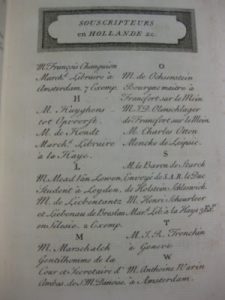 SOUSCRIPTEURS
en HOLLANDE &c.
M. François Changuion
March.d Libraire à
Amsterdam 7 Exemp.
H
M. Huyghens
tot
M. de Hondt
March.d Libraire
à la Haye.
L
M. Mead Van Lowen,
Student à Leyden.
M. de Liebentantz
et Liebenau de Breslau
en Silesie. 2 Exemp.
M
M. Marschalck
Gentilhomme de la
Cour et Secretaire d'
Ambas. de
O
M. de Ochsenstein
Bourgemaitre à
Francfort sur le Mein
M. Olenschlager
de Francfort sur le
Mein.
M. Charles Otton
Mencke de Leipsic.
S
M. le Baron de Starck
Envoyé de S.A.R. le Duc
de Holstein Schleswick
M. Henri Scheurleer
Mar. Lib. à la Haye
T
M. J. R. Tronchin
à Geneve
W
M. Anthoine Warin
à Amsterdam.